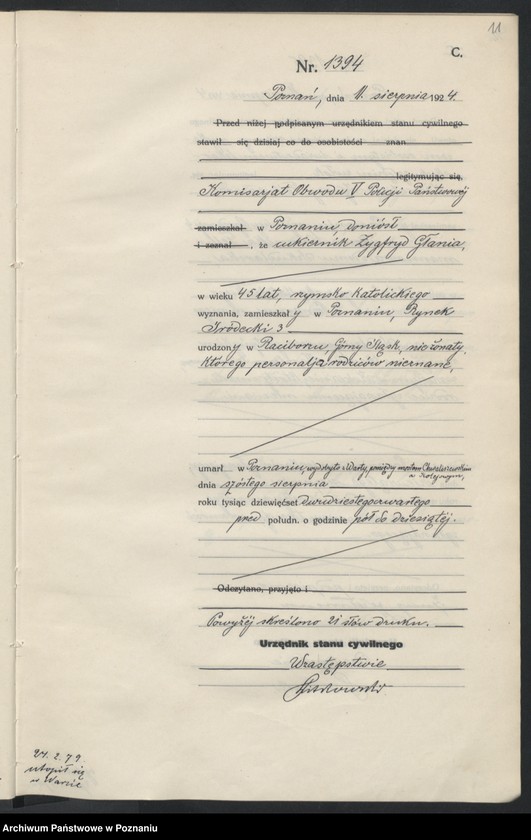 11
C.
Nr. 1394
Poznań, dnia 11. sierpnia 1924.
Przed niżej podpisanym urzędnikiem stanu cywilnego
stawił się dzisiaj co do osobistości znan
legitymując się,
Komisarjat Obwodu V Policji Państwowej
zamieszkał w Poznaniu, doniósł
i zeznał, że cukiernik Zygfryd Głania,
w wieku 45 lat, rzymsko katolickiego
wyznania, zamieszkały w Poznaniu, Rynek
Śródecki 3
urodzony w Raciborzu, Górny Śląsk, nieżonaty,
którego personalja rodziców nieznane,
umarł w Poznaniu, wydobyto z Warty, pomiędzy mostem Chwaliszewskim
a kolejowym,
dnia szóstego sierpnia
roku tysiąc dziewięćset dwudziestegoczwartego
przed połudn. o godzinie pół do dziesiątej.
Odczytano, przyjęto i
Powyżej skreślono 21 słów druku.
Urzędnik stanu cywilnego
W zastępstwie
21. 2. 79.
utopił się
w Warcie
Archiwum Państwowe w Poznaniu